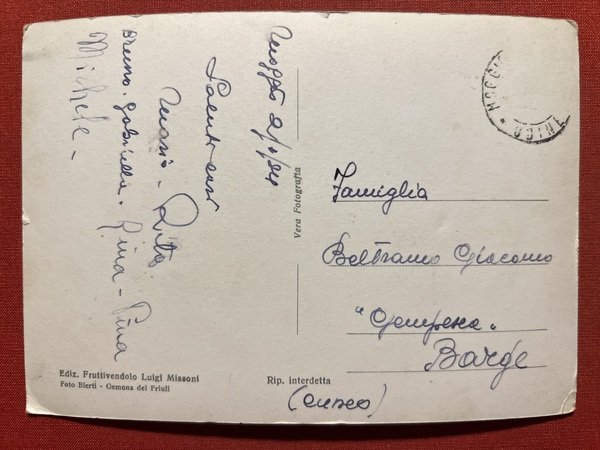 Moggio 2/1/54
Saluti cari
Mario - Rita
Bruno. Gabriella. Rina - Pina
Michele -
Vera Fotografia
Famiglia
Beltramo Giacomo
Barge
(Cuneo)
Rip. interdetta
Ediz. Fruttivendolo Luigi Missoni
Foto Bierti - Gemona del Friuli
MOGGIO